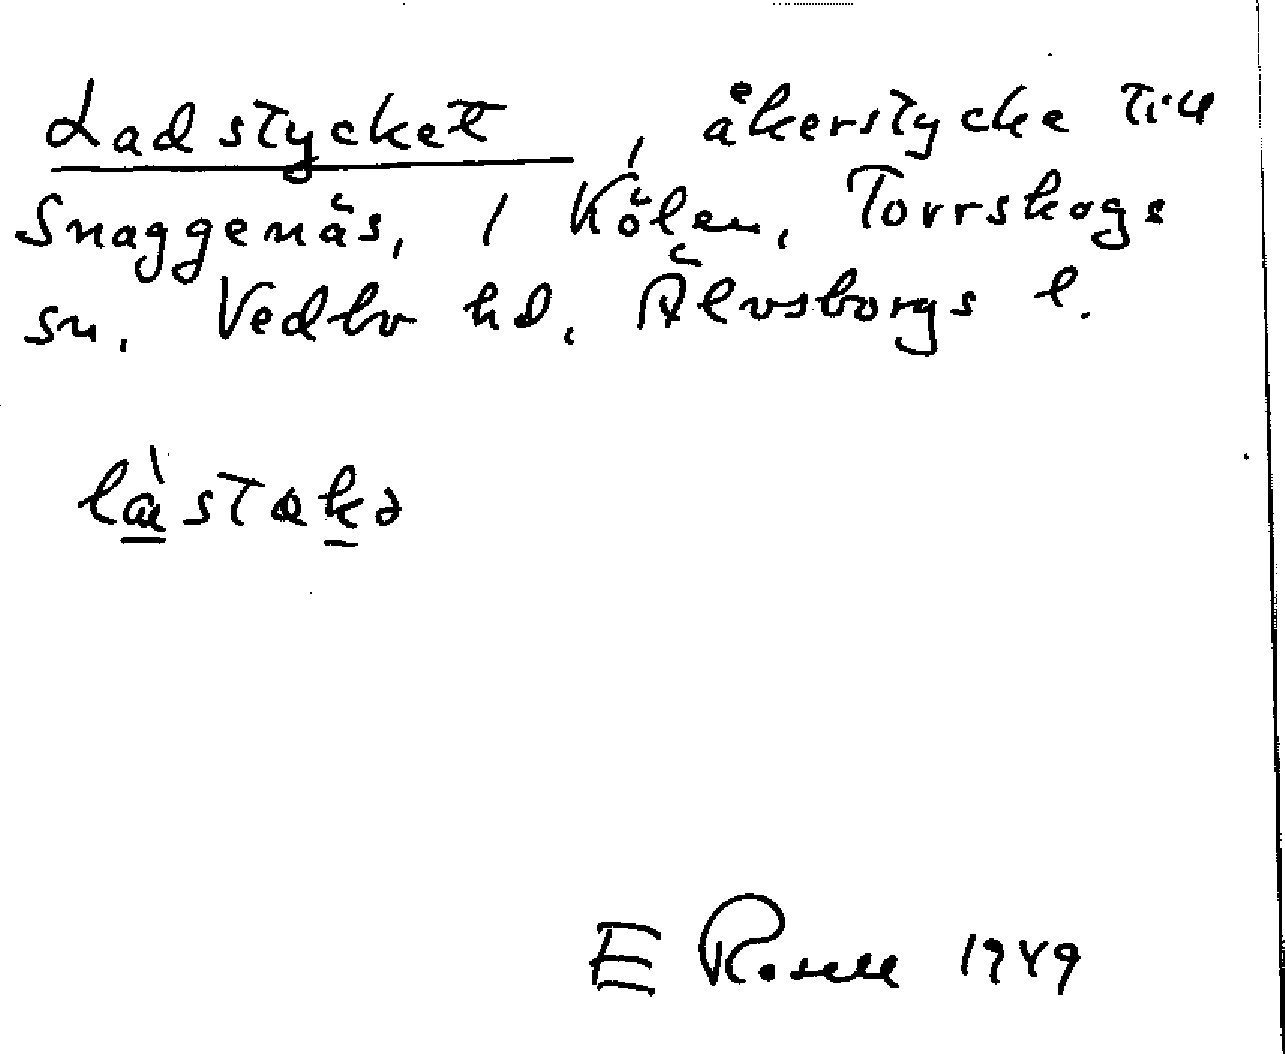 Ladstycket, åkerstycke till
Snaggenäs, i Kölen, Torrskogs
sn. Vedbo hd. Älvsborgs l.
E Rosell 1949